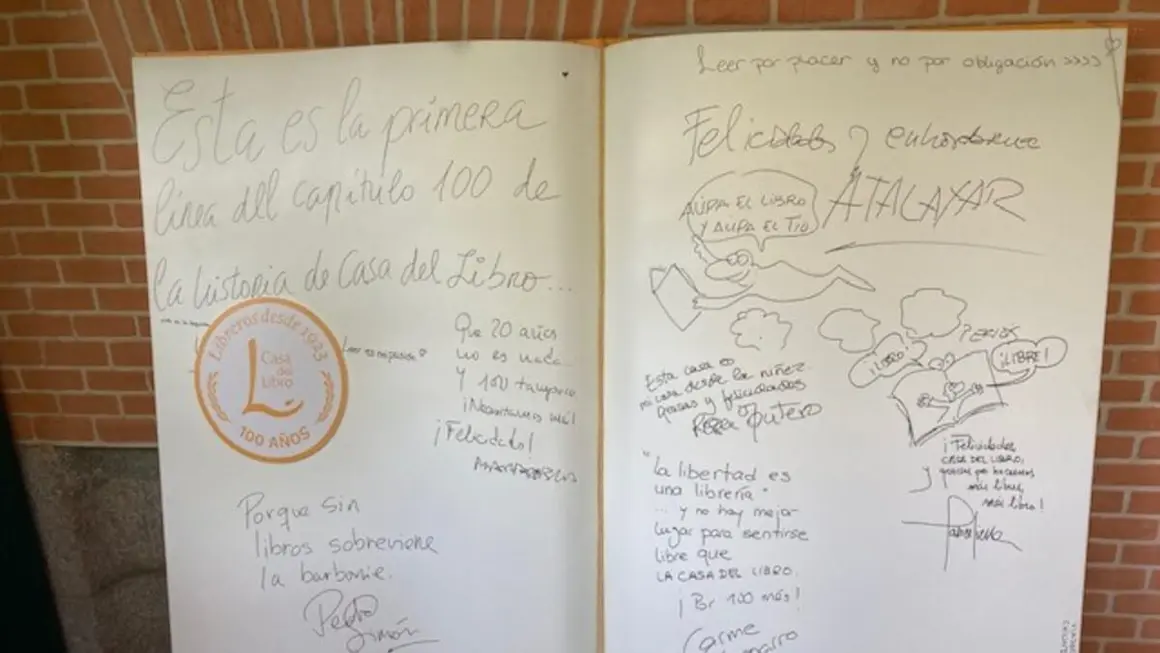 Esta es la primera
línea del capítulo 100 de
la historia de Casa del Libro...
Libreros desde 1923
Casa
del
Libro
100 AÑOS
Leer es
Que 20 años
no es nada...
Y 100 tampoco
¡Necesitamos más!
¡Felicidades!
Porque sin
libros sobreviene
la barbarie.
Pedro
Simón
Leer por placer y no por obligación >>>>
Felicidades y enhorabuena
ATALAYAR
AÚPA EL LIBRO
Y AUPA EL TIO
Esta casa es
mi casa desde la niñez.
Gracias y felicidades
¡LIBRO!
¡LIBRE!
¡Felicidades
CASA DEL LIBRO,
y gracias por hacernos
más libres,
más libro!
"La libertad es
una librería"
... y no hay mejor
lugar para sentirse
libre que
LA CASA DEL LIBRO.
¡Por 100 más!
Carme